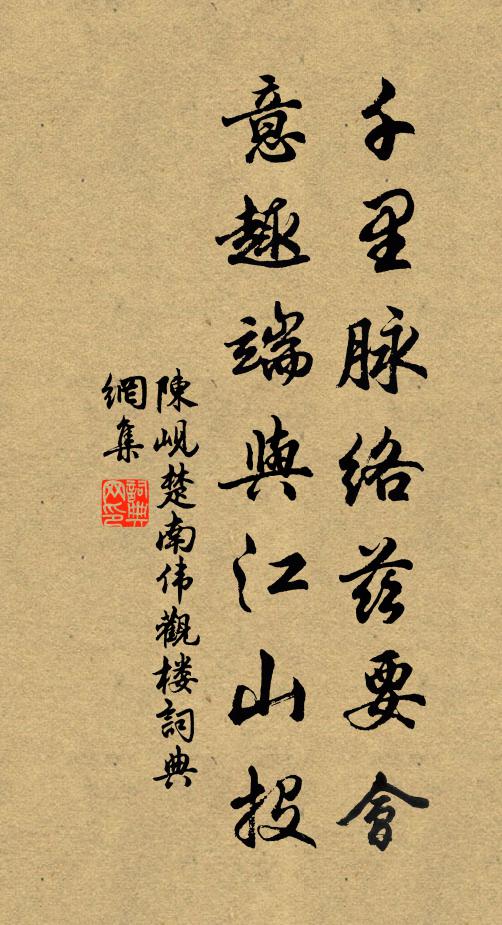 千里脉絡茲要會
意趣端與江山投
陳峴楚南伟觀楼詞典
網集
詞典網印